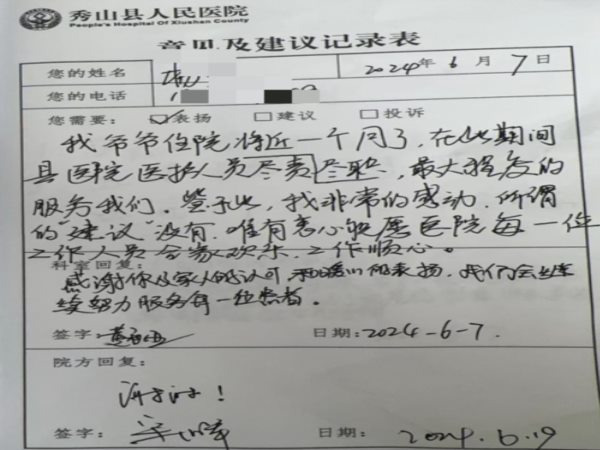 秀山县人民医院
People's Hospital Of Xiushan County
意见及建议记录表
您的姓名 2024年6月7日
您的电话
您需要: ☑表扬 □建议 □投诉
我爷爷住院将近一个月了,在此期间
县医院医护人员尽责尽职,最大程度的
服务我们。鉴于此,我非常的感动,所谓
的“建议”没有,唯有衷心祝愿医院每一位
工作人员合家欢乐,工作顺心。
科室回复:
感谢你及家人的认可和 表扬,我们会继
续努力服务每一位患者。
签字: 日期:2024-6-7.
院方回复:
谢谢!
签字: 日期: 2024.6.19